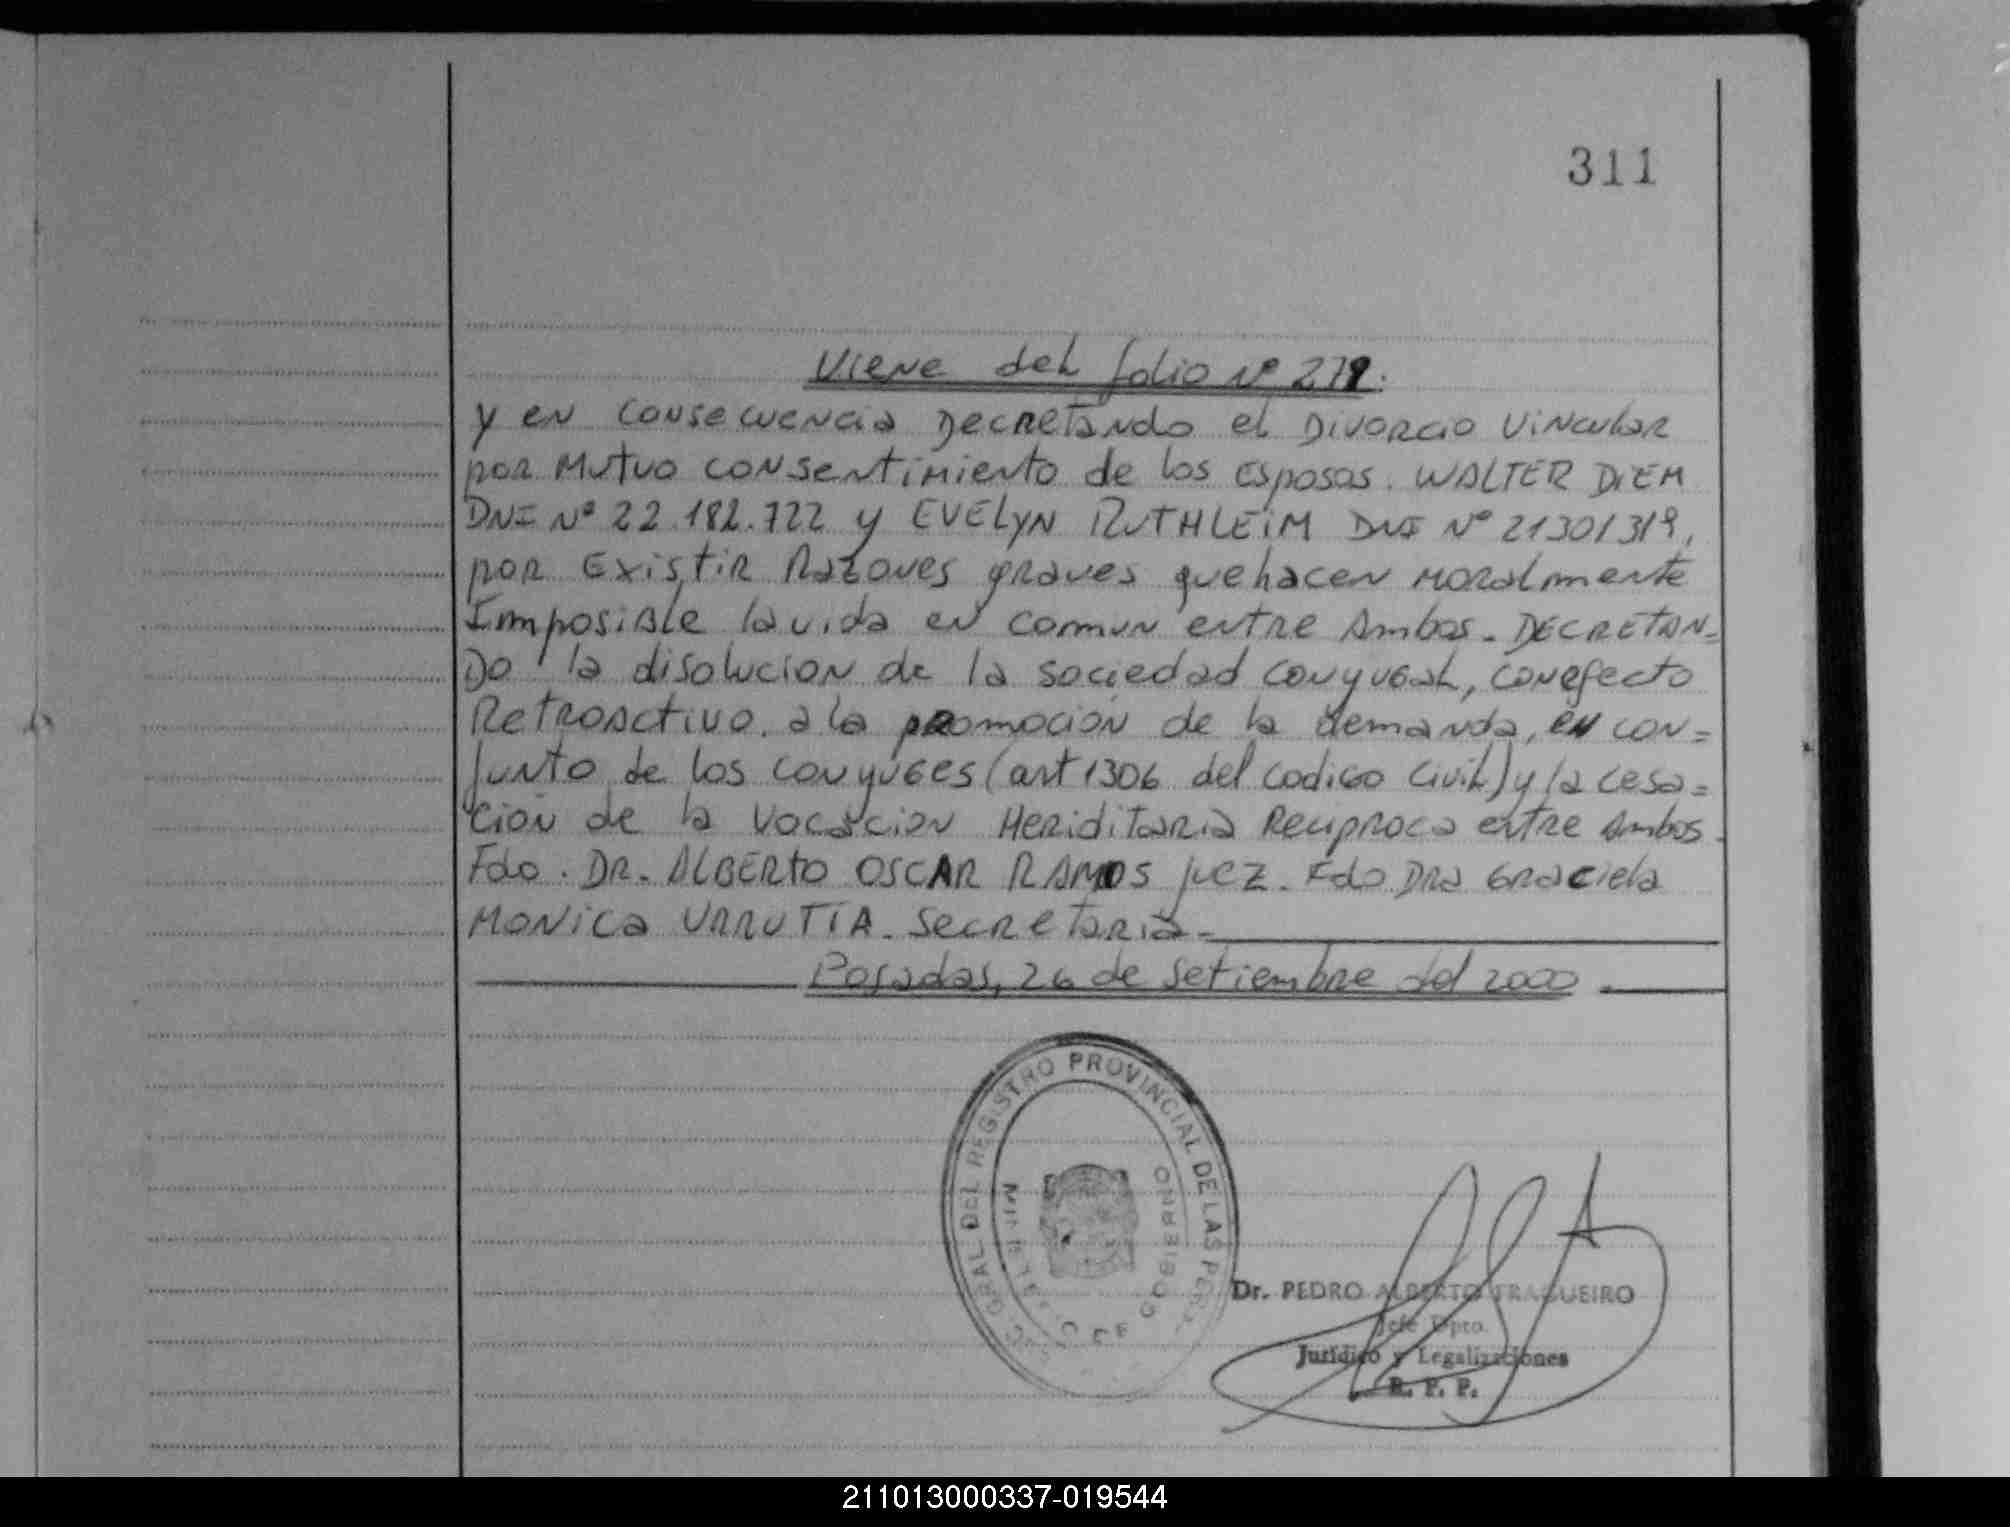 311
Viene del folio Nº 279.
y en consecuencia Decretando el Divorcio Vincular
por Mutuo consentimiento de los Esposos. WALTER DiEM
DNI Nº 22.182.722 y EVELYN RUTHLEiM DNI Nº 21301319,
por Existir Razones graves que hacen moralmente
Imposible la vida en comun entre Ambos. DECRETAN=
DO la disolucion de la sociedad conyugal, con efecto
Retroactivo. a la promoción de la demanda, en con=
junto de los conyuges (art 1306 del codigo Civil) y la cesa=
ción de la Vocacion Heriditaria Reciproca entre Ambos.
Fdo. DR. ALBERTO OSCAR RAMOS juez. Fdo Dra Graciela
Monica URRUTIA. Secretaria.
Posadas, 26 de setiembre del 2000.
GRAL DEL REGISTRO PROVINCIAL DE LAS PERS
GOBIERNO
Dr. PEDRO ALBERTO TRAGUEIRO
Jefe Dpto.
Jurídico y Legalizaciones
R. P. P.
211013000337-019544